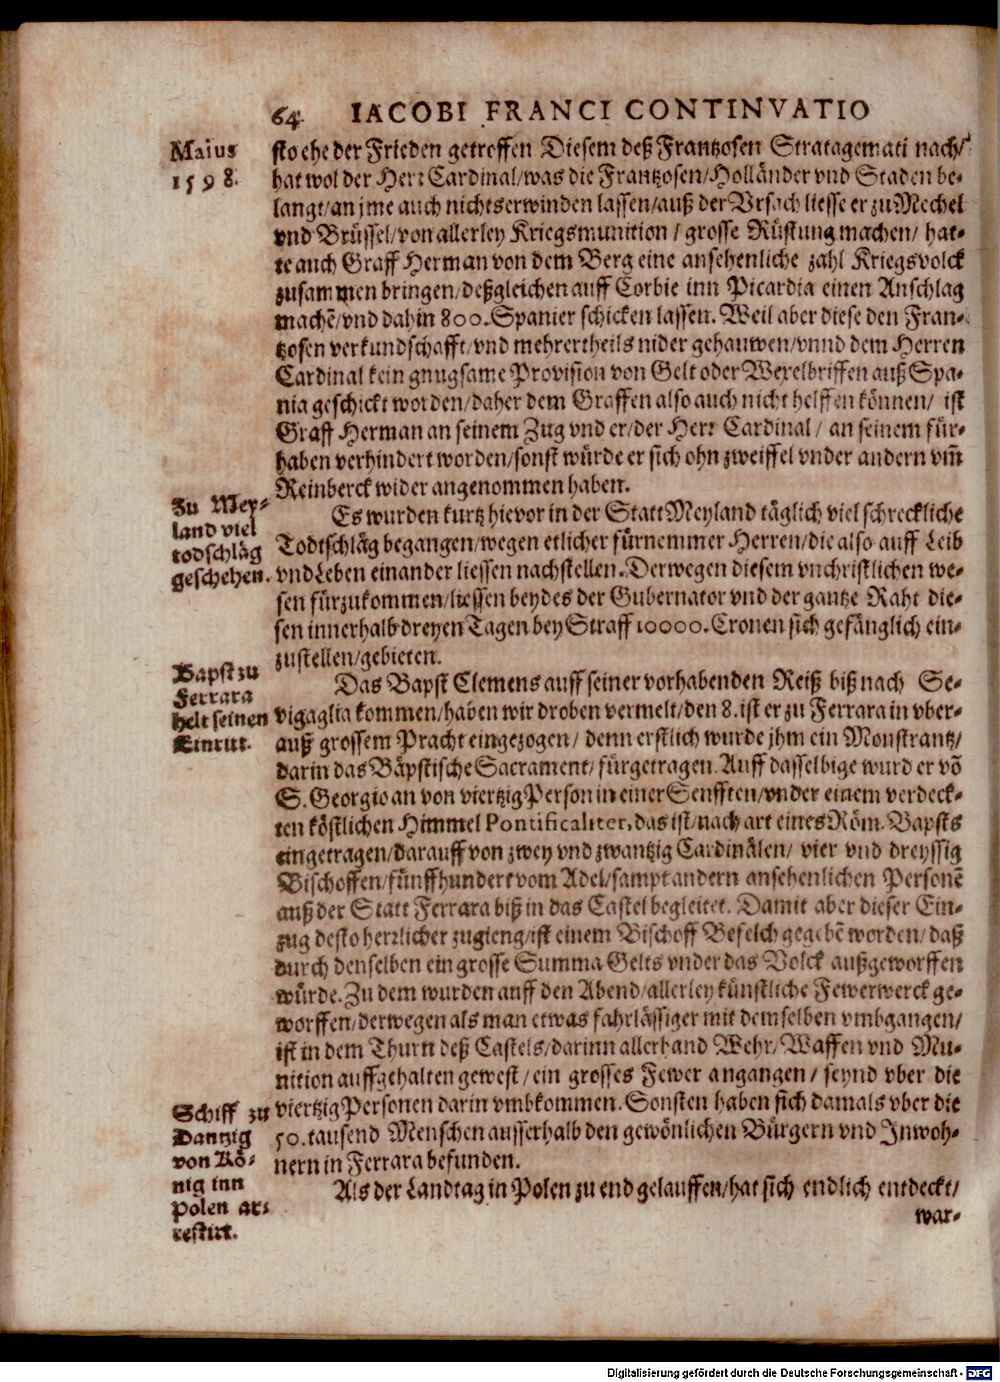 64 IACOBI FRANCI CONTINVATIO
Maius
1598.
sto ehe der Frieden getroffen Diesem deß Frantzosen Stratagemati nach/
hat wol der Herr Cardinal/was die Frantzosen/Holländer vnd Staden be-
langt/an jme auch nichts erwinden lassen/auß der Vrsach liesse er zu Mechel
vnd Brüssel/von allerley Kriegsmunition/grosse Rüstung machen/hat-
te auch Graff Herman von dem Berg eine ansehenliche zahl Kriegsvolck
zusammen bringen/deßgleichen auff Corbie inn Picardia einen Anschlag
machẽ/vnd dahin 800. Spanier schicken lassen. Weil aber diese den Fran-
tzosen verkundschafft/vnd mehrertheils nider gehauwen/vnnd dem Herren
Cardinal kein gnugsame Provision von Gelt oder Wexelbriffen auß Spa-
nia geschickt worden/daher dem Graffen also auch nicht helffen können/ist
Graff Herman an seinem Zug vnd er/der Herr Cardinal/an seinem für-
haben verhindert worden/sonst würde er sich ohn zweiffel vnder andern vm̃
Reinberck wider angenommen haben.
Zu Mey-
land viel
todschläg
geschehen.
Es wurden kurtz hievor in der Statt Meyland täglich viel schreckliche
Todtschläg begangen/wegen etlicher fürnemmer Herren/die also auff Leib
vnd Leben einander liessen nachstellen. Derwegen diesem vnchristlichen we-
sen fürzukommen/liessen beydes der Gubernator vnd der gantze Raht die-
sen innerhalb dreyen Tagen bey Straff 10000. Cronen sich gefänglich ein-
zustellen/gebieten.
Bapst zu
Ferrara
helt seinen
Einritt.
Das Bapst Clemens auff seiner vorhabenden Reiß biß nach Se-
vigaglia kommen/haben wir droben vermelt/den 8. ist er zu Ferrara in vber-
auß grossem Pracht eingezogen/denn erstlich wurde jhm ein Monstrantz/
darin das Bäpstische Sacrament/fürgetragen. Auff dasselbige wurd er võ
S. Georgio an von viertzig Person in einer Senfften/vnder einem verdeck-
ten köstlichen Himmel Pontificaliter, das ist/nach art eines Röm. Bapsts
eingetragen/darauff von zwey vnd zwantzig Cardinälen/vier vnd dreyssig
Bischoffen/fünffhundert vom Adel/sampt andern ansehenlichen Personẽ
auß der Statt Ferrara biß in das Castel begleitet. Damit aber dieser Ein-
zug desto herrlicher zugieng/ist einem Bischoff Befelch gegebẽ worden/daß
durch denselben ein grosse Summa Gelts vnder das Volck außgeworffen
würde. Zu dem wurden auff den Abend/allerley künstliche Fewerwerck ge-
worffen/derwegen als man etwas fahrlässiger mit demselben vmbgangen/
ist in dem Thurn deß Castels/darinn allerhand Wehr/Waffen vnd Mu-
nition auffgehalten gewest/ein grosses Fewer angangen/seynd vber die
viertzig Personen darin vmbkommen. Sonsten haben sich damals vber die
50. tausend Menschen ausserhalb den gewönlichen Bürgern vnd Inwoh-
nern in Ferrara befunden.
Schiff zu
Dantzig
von Kö-
nig inn
Polen ar-
restirt.
Als der Landtag in Polen zu end gelauffen/hat sich endlich entdeckt/
war-
Digitalisierung gefördert durch die Deutsche Forschungsgemeinschaft - DFG